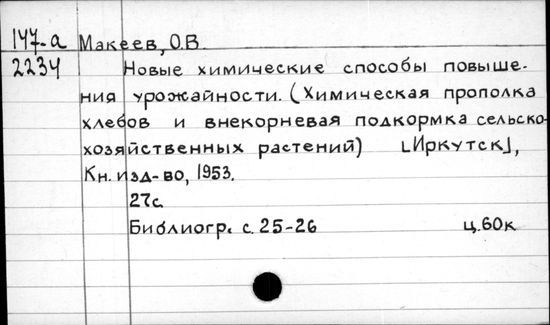 147-а Макеев, О.В.
2234 Новые химические способы повыше-
ния урожайности. (Химическая прополка
хлебов и внекорневая подкормка сельско-
хозяйственных растений) [Иркутск],
Кн. изд-во, 1953.
27с.
Библиогр. с. 25-26 ц.60к